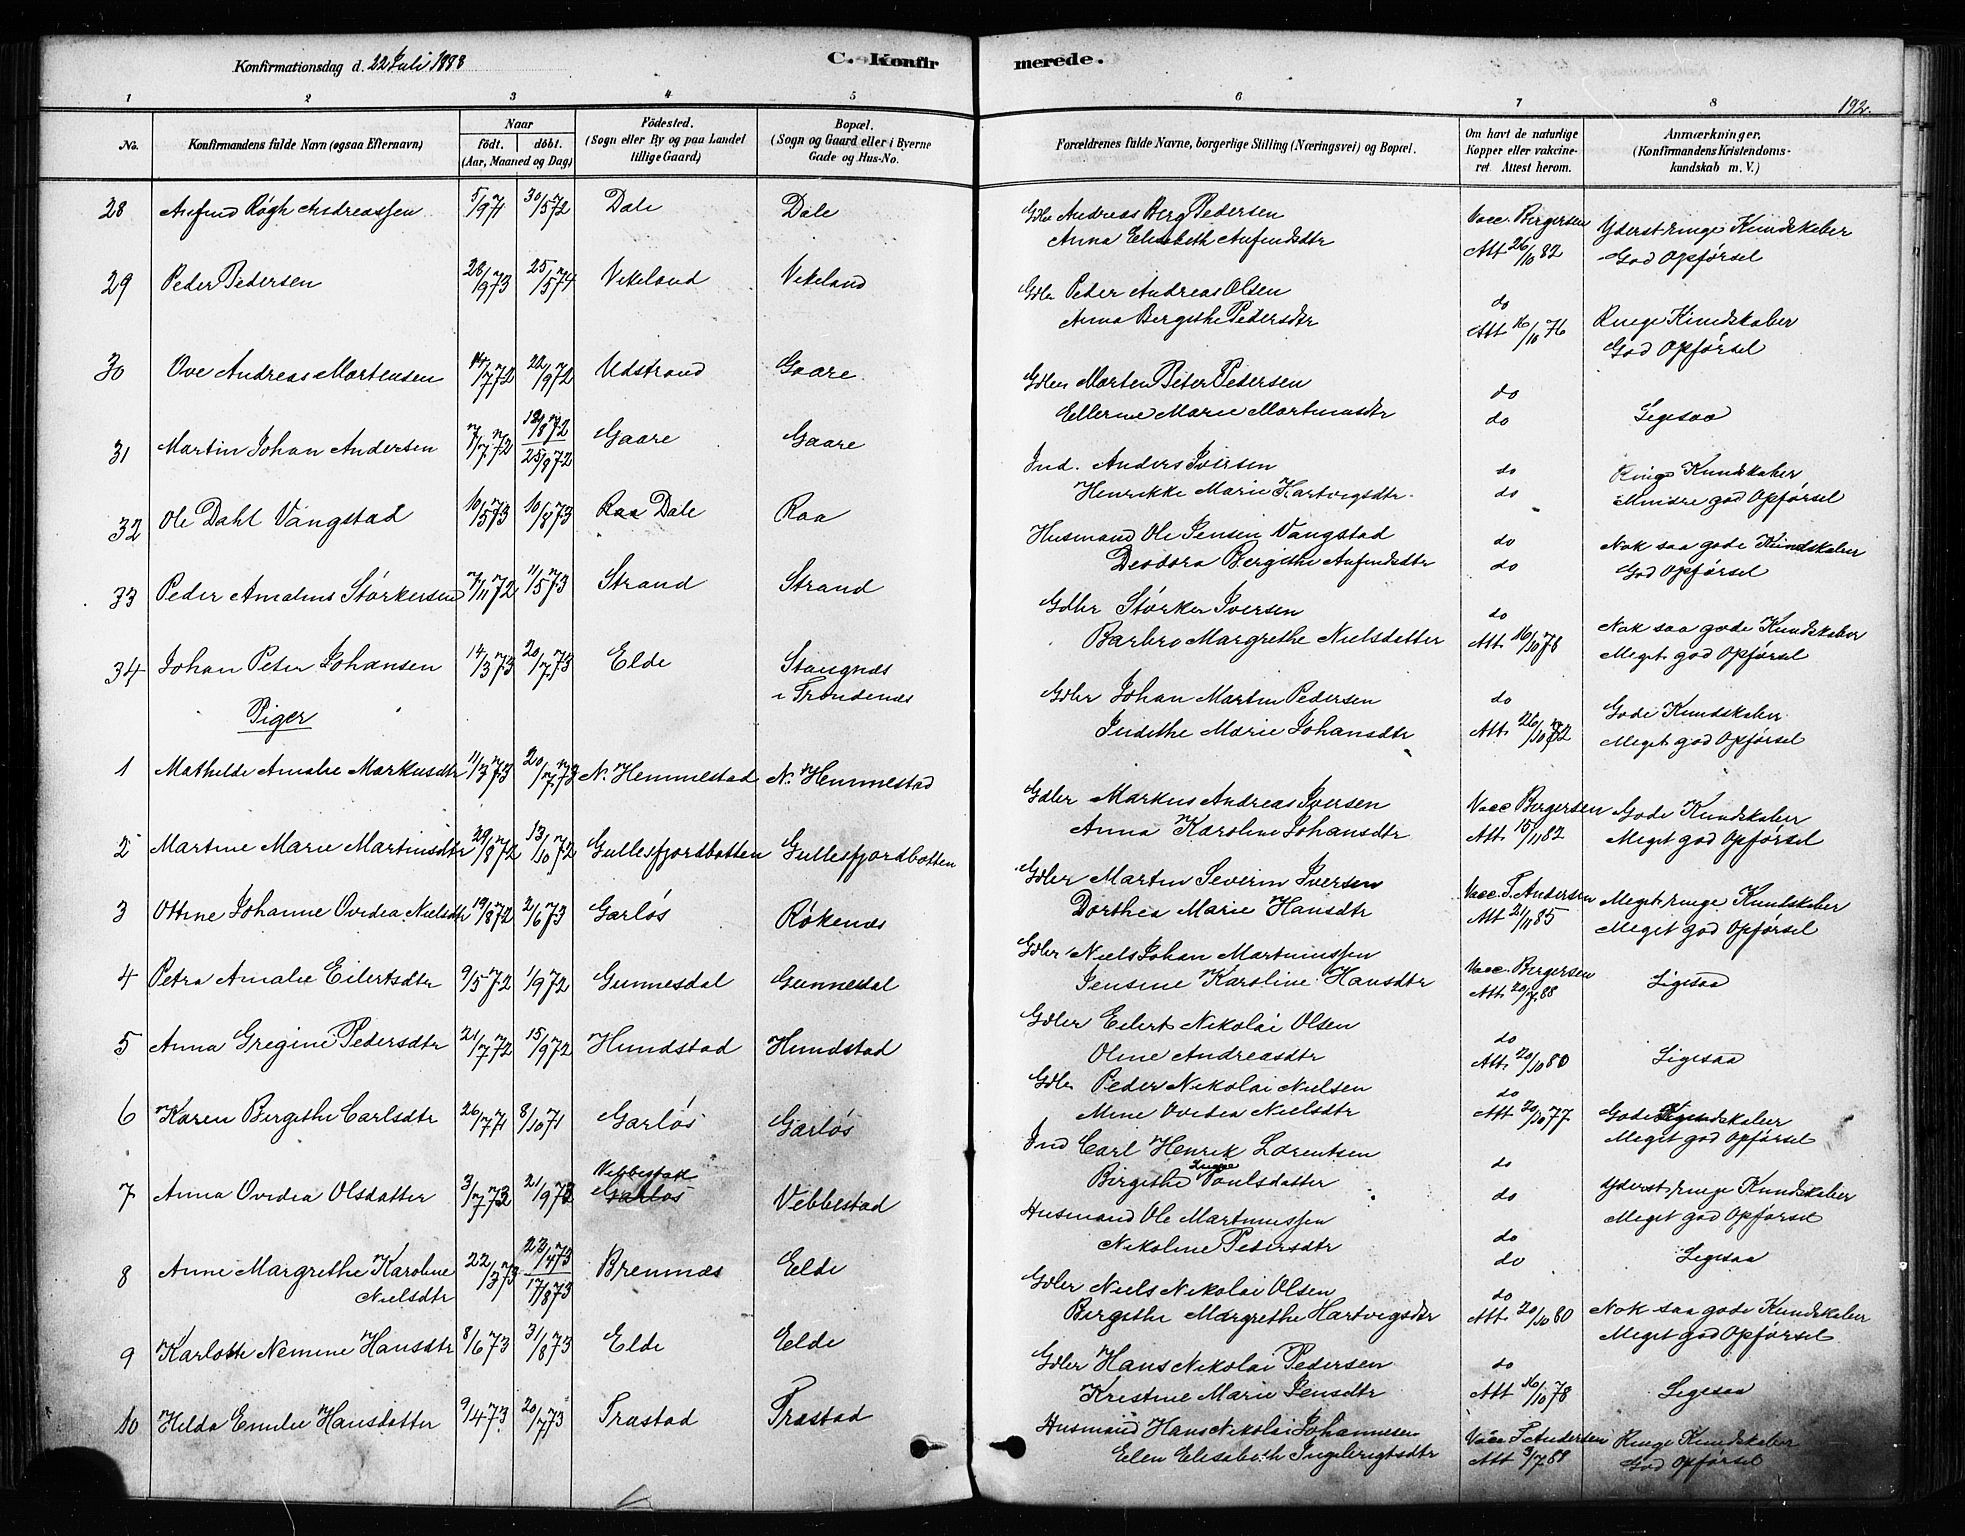 Konfirmationsdag d. 22 Juli 1888
C. Konfirmerede.
192.
1 2 3 4 5 6 7 8
No.
Konfirmandens fulde Navn (ogsaa Efternavn)
Naar
födt. döbt.
(Aar, Maaned og Dag)
Födested.
(Sogn eller By og paa Landet
tillige Gaard)
Bopæl.
(Sogn og Gaard eller i Byerne
Gade og Hus-No.
Forældrenes fulde Navne, borgerlige Stilling (Næringsvei) og Bopæl.
Om havt de naturlige
Kopper eller vakcine-
ret. Attest herom.
Anmærkninger.
(Konfirmandens Kristendoms-
kundskab m. V.)
28 Anfind Røgh Andreassen 5/9 71 30/5 72 Dale Dale
Gdbr Andreas Berg Pedersen Vacc. Bergersen Yderst ringe Kundskaber
Anna Elisabeth Anfindsdtr Att 26/10 82 God Opførsel
29 Peder Pedersen 28/9 73 25/5 74 Vikeland Vikeland
Gdbr Peder Andreas Olsen do Ringe Kundskaber
Anna Bergithe Pedersdtr Att 16/10 76 God Opførsel
30 Ove Andreas Mortensen 14/7 72 22/9 72 Udstrand Gaare
Gdbr Morten Peter Pedersen do
Ellerine Marie Mortensdtr do Ligesaa
31 Martin Johan Andersen 7/7 72 18/8 72 25/9 72 Gaare Gaare
Ind. Anders Iversen do Ringe Kundskaber
Henrikke Marie Hartvigsdtr do Mindre god Opførsel
32 Ole Dahl Vangstad 10/5 73 10/8 73 Raa Dale Raa
Husmand Ole Jensen Vangstad do Nok saa gode Kundskaber
Deodora Bergithe Anfindsdtr do God Opførsel
33 Peder Amalius Størkersen 7/11 72 11/5 73 Strand Strand
Gdbr Størker Iversen do Nok saa gode Kundskaber
Barbro Margrethe Nielsdatter Att. 16/10 78 Meget god Opførsel
34 Johan Peter Johansen 14/3 73 20/7 73 Elde Stangnæs
i Trondenæs
Gdbr Johan Martin Pedersen do Gode Kundskaber
Judithe Marie Johansdtr Att. 26/10 82 Meget god Opførsel
Piger
1 Mathilde Amalie Markusdtr 11/3 73 20/7 73 N. Hemmestad N. Hemmestad
Gdbr Markus Andreas Iversen Vacc Bergersen Gode Kundskaber
Anna Karoline Johansdtr Att. 15/11 82 Meget god Opførsel
2 Martine Marie Martinsdtr 29/8 72 13/10 72 Gullesfjordbotten Gullesfjordbotten
Gdbr Martin Severin Iversen Vacc T. Andersen Meget ringe Kundskaber
Dorthea Marie Hansdtr Att 21/11 85 Meget god Opførsel
3 Ottine Johanne Ovidia Nielsdtr 19/8 72 2/6 73 Garløs Røkenæs
Gdbr Niels Johan Martinussen Vacc. Bergersen
Jensine Karoline Hansdtr Att. 20/7 88 Ligesaa
4 Petra Amalie Eilertsdtr 9/5 72 1/9 72 Gunnesdal Gunnesdal
Gdbr Eilert Nikolai Olsen do
Oline Andreasdtr Att. 20/10 80 Ligesaa
5 Anna Gregine Pedersdtr 21/7 72 15/9 72 Hundstad Hundstad
Gdbr Peder Nikolai Nielsen do
Mine Ovidia Nielsdtr Att 20/10 77 Gode Kundskaber
Meget god Opførsel
6 Karen Birgithe Carlsdtr 26/7 71 8/10 71 Garløs Garløs
Ind Carl Henrik Lorentsen do
Birgithe Poulsdatter do Yderst ringe Kundskaber
Meget god Opførsel
7 Anna Ovidia Olsdatter 3/7 73 21/9 73 Vebbestad Garløs Vebbestad
Husmand Ole Martinussen do
Nikoline Pedersdtr do Ligesaa
8 Anne Margrethe Karoline
Nielsdtr 22/3 73 23/4 73 17/8 73 Bremnæs Elde
Gdbr Niels Nikolai Olsen do Nok saa gode Kundskaber
Birgithe Margrethe Hartvigsdtr Att. 20/10 80 Meget god Opførsel
9 Karlotte Nemine Hansdtr 8/6 73 31/8 73 Elde Elde
Gdbr Hans Nikolai Pedersen do
Kristine Marie Jensdtr Att 16/10 78 Ligesaa
10 Hilda Emilie Hansdatter 9/4 73 20/7 73 Trastad Trastad
Husmand Hans Nikolai Johannesen Vacc T. Andersen Ringe Kundskaber
Elen Elisabeth Ingebrigtsdtr Att 3/7 88 God Opførsel